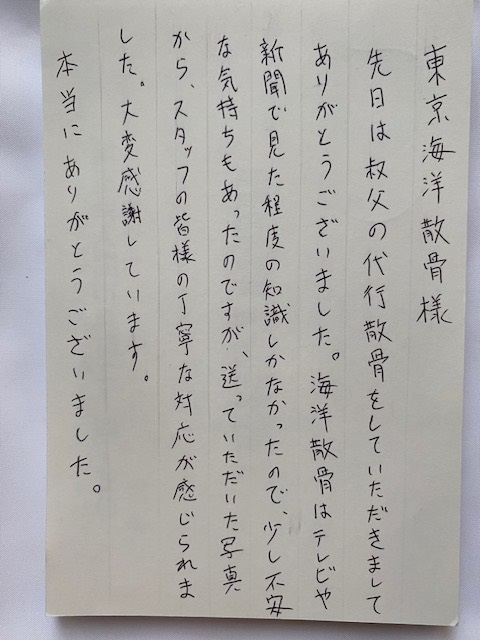 東京海洋散骨様
先日は叔父の代行散骨をしていただきまして
ありがとうございました。海洋散骨はテレビや
新聞で見た程度の知識しかなかったので、少し不安
な気持ちもあったのですが、送っていただいた写真
から、スタッフの皆様の丁寧な対応が感じられま
した。大変感謝しています。
本当にありがとうございました。